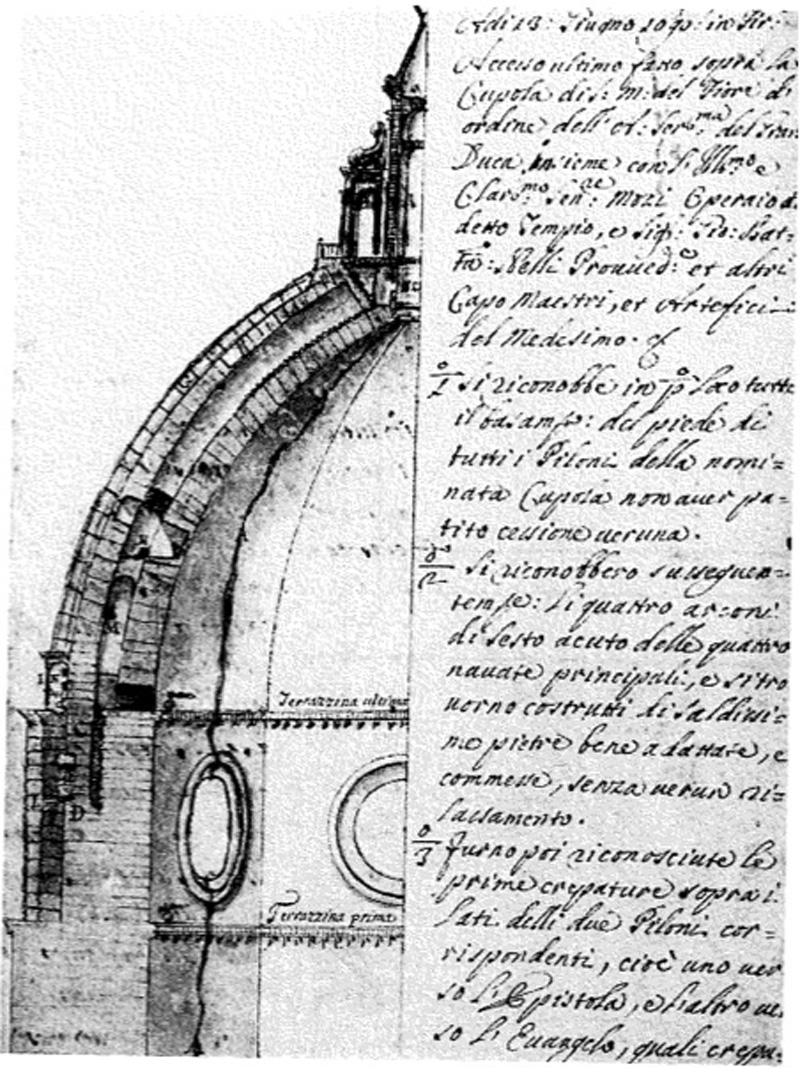 Adi 13: Giugno 1695: in Fir:
Accesso ultimo fatto sopra la
Cupola di S: M: del Fiore di
ordine dell' A: Ser:ma del Gran
Duca, insieme con l' Ill:mo e
Clar:mo Sen:re Mozi Operaio di
detto Tempio, e Sig: Gio: Bat=
ta: Nelli Proved:e et altri
Capo Maestri, et Artefici
del Medesimo.
si riconobbe in p:o loco tutto
il basam:o: del piede di
tutti i Piloni della nomi=
nata Cupola non aver pa=
tito cessione veruna.
2 si riconobbero susseguen=
tem:e: li quattro arconi
di sesto acuto delle quattro
navate principali, e si tro
vorno costrutti di saldissi=
me pietre bene adattate, e
commesse, senza verun ri=
lassamento.
3 furno poi riconosciute le
prime crepature sopra i
lati delli due Piloni cor=
rispondenti, cioè uno ver
so l' Epistola, e l'altro ve
so l' Evangelo, quali crepa=
Terrazzina ultima
Terrazzina prima
D